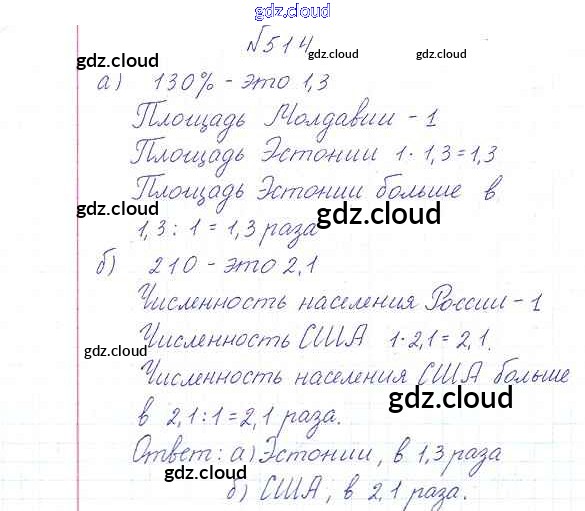 gdz.cloud
№514
gdz.cloud gdz.cloud
а) 130% - это 1,3
gdz.cloud gdz.cloud
Площадь Молдавии - 1
Площадь Эстонии 1 · 1,3 = 1,3
Площадь Эстонии больше в
gdz.cloud gdz.cloud
1,3 : 1 = 1,3 раза
б) 210 - это 2,1
Численность населения России - 1
Численность США 1 · 2,1 = 2,1.
gdz.cloud
Численность населения США больше
gdz.cloud
в 2,1 : 1 = 2,1 раза.
Ответ: а) Эстонии, в 1,3 раза
gdz.cloud gdz.cloud
б) США, в 2,1 раза.